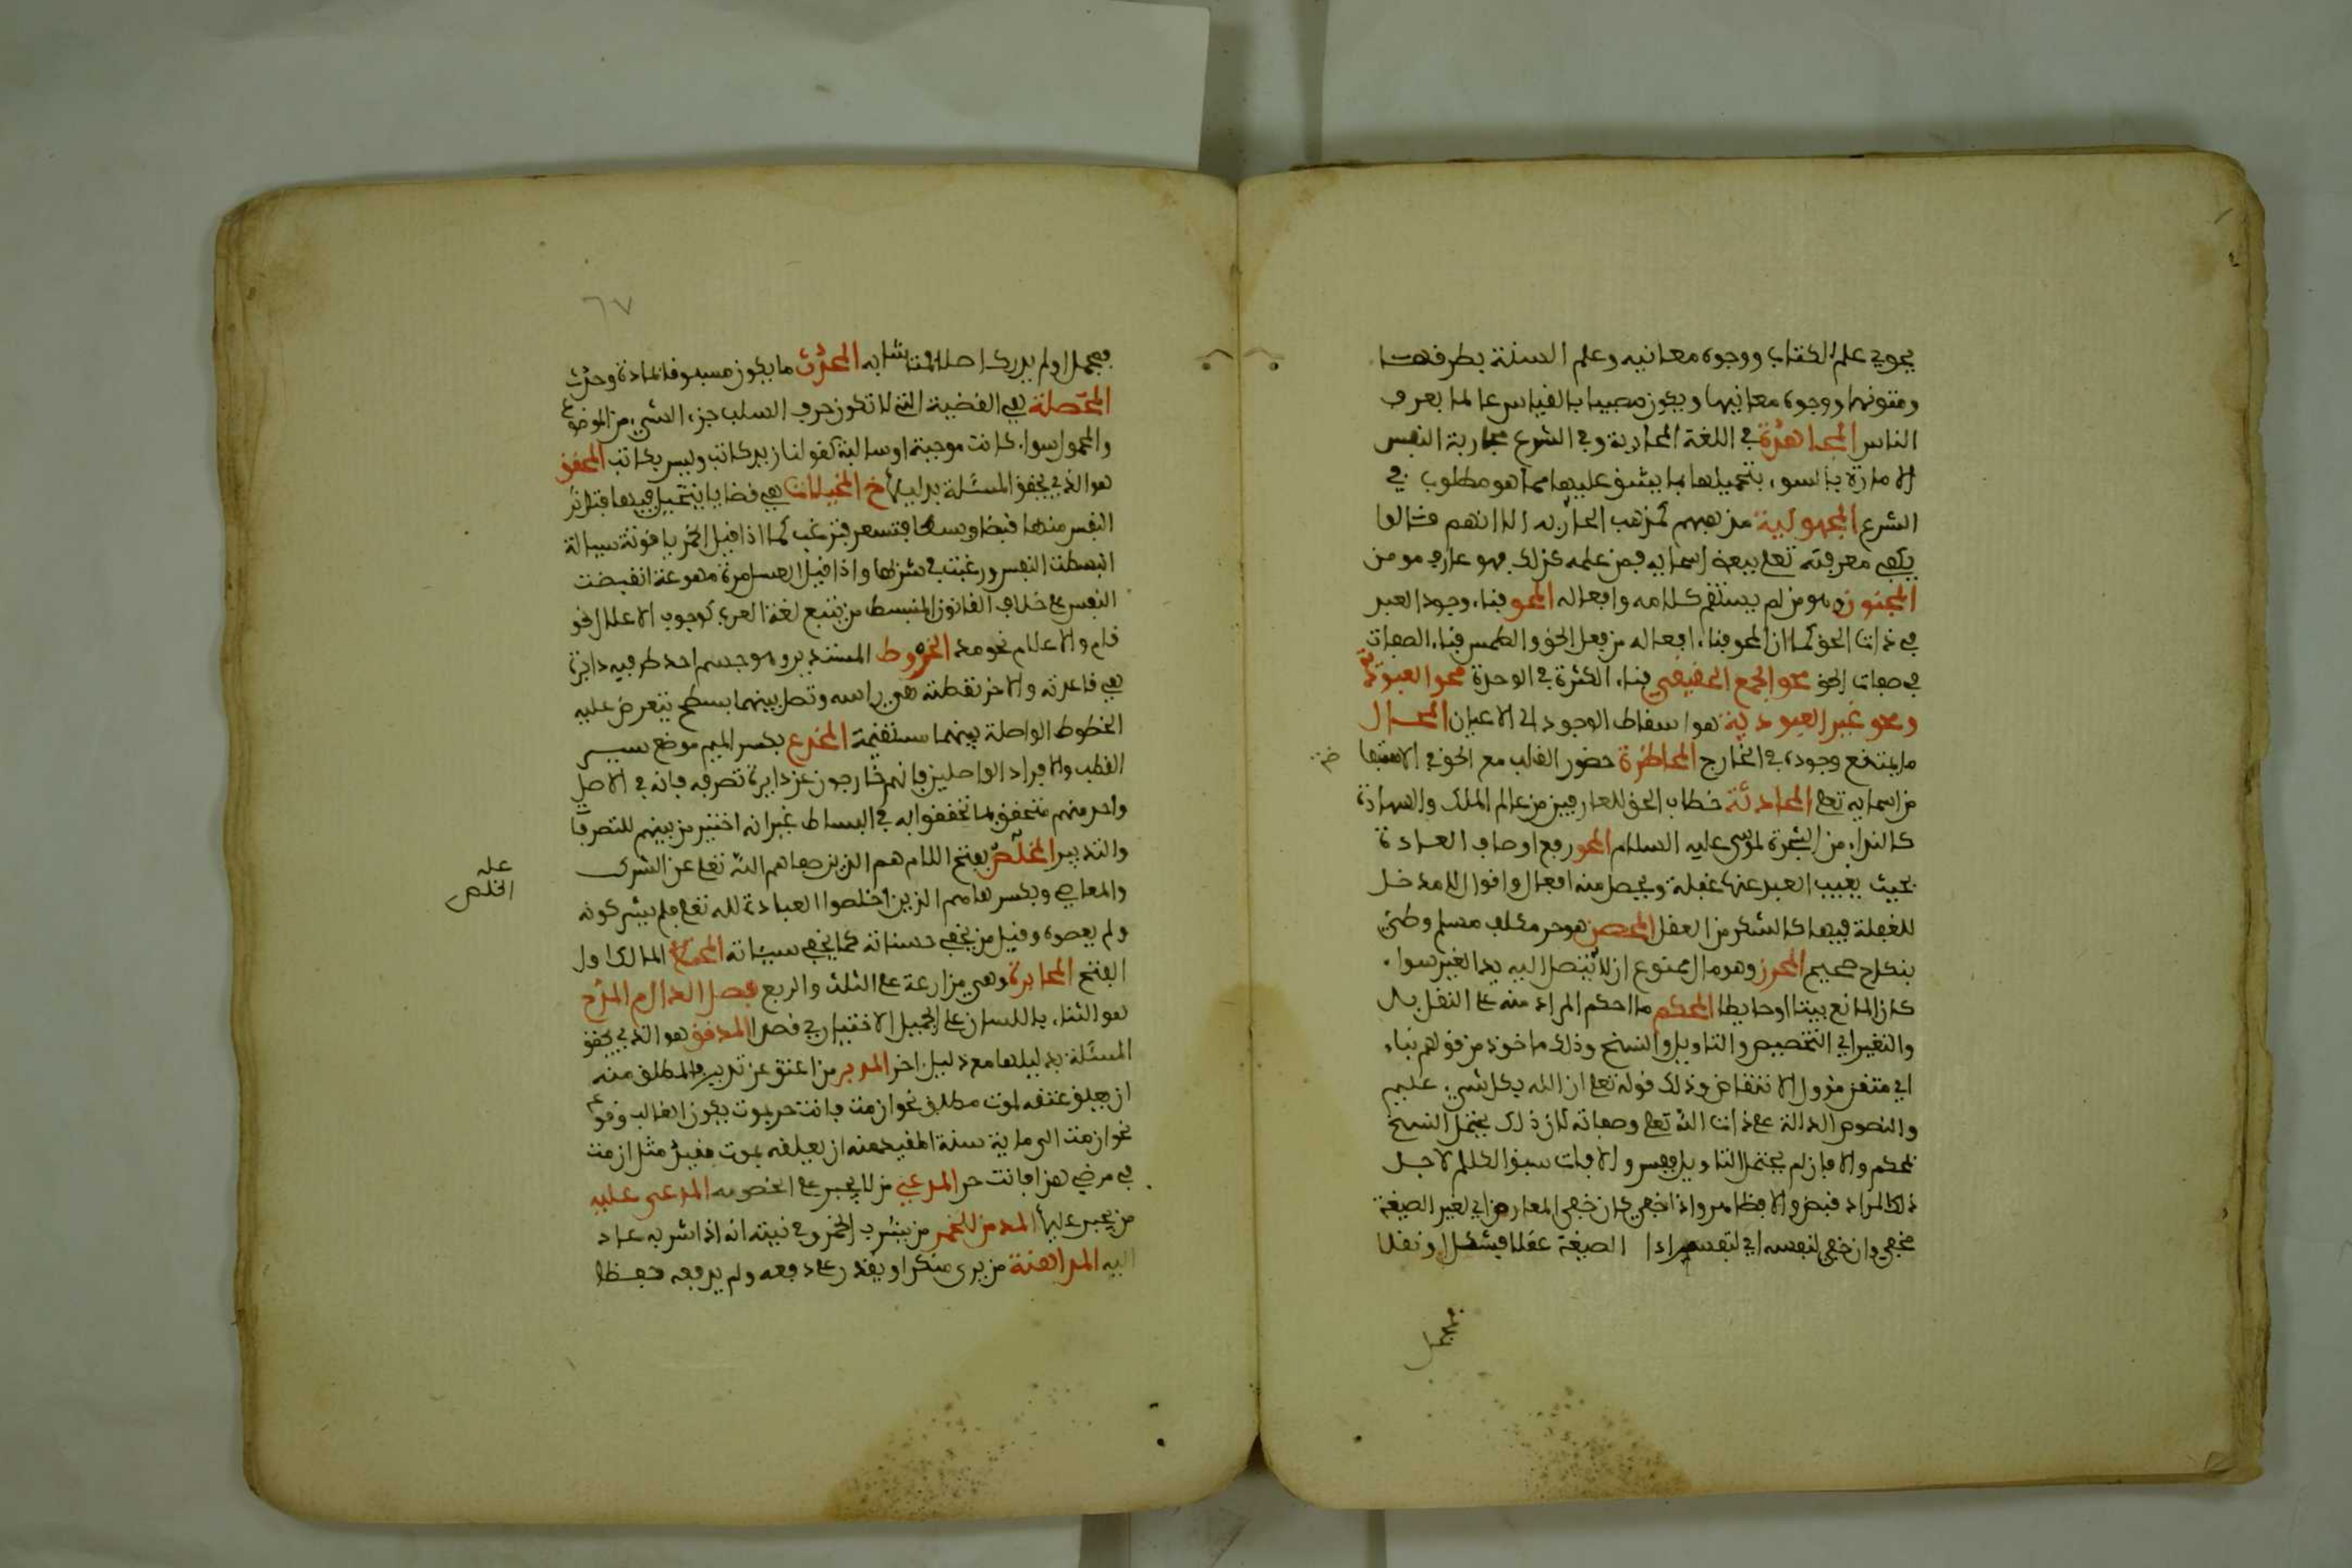 يحوي علم الكتاب ووجوه معانيه وعلم السنة بطرقها
ومتونها ووجوه معانيها ويكون مصيبا بالقياس عالما بعرف
الناس المجاهدة في اللغة المحاربة وفي الشرع محاربة النفس
الامارة بالسوء بتحميلها ما يشق عليها مما هو مطلوب في
الشرع المجهولية مذهبهم كمذهب الحازمية الا انهم قالوا
يكفي معرفته تعلى ببعض اسمايه فمن علمه كذلك فهو عارف مومن
المجنون وهو من لم يستقم كلامه وافعاله المحو فناء وجود العبد
في ذات الحق كما ان المحو فناء افعاله من فعل الحق والطمس فناء الصفات
في صفات الحق محو الجمع الحقيقي فناء الكثرة في الوحدة محو العبودية
ومحو غير العبودية هو اسقاط الوجود الى الاعيان المحال
ما يمتنع وجوده في الخارج المحاضرة حضور القلب مع الحق في الاستفا
ضة
من اسمايه تعلى المحادثة خطاب الحق للعارفين من عالم الملك والشهادة
كالنداء من الشجرة لموسى عليه السلام المحو رفع اوصاف العادة
بحيث يغيب العبد عنها عقله ويحصل منه افعال واقوال لا مدخل
للعقلة فيها كالسكر من العقل المحصن هو حر مكلف مسلم وطئ
بنكاح صحيح المحرز وهو مال ممنوع ان لا يتصل اليه يد الغير سواء
كان المانع بيتا او حايطا المحكم ما احكم المراد منه على النقل بال
والتغير اي التخصيص والتاويل والنسخ وذلك ماخوذ من قولهم بناء
اي متقن مزول الانتقاض وذلك قوله تعلى ان الله بكل شيء عليم
والنصوص الدالة على ذات الله تعلى وصفاته لان ذلك يحتمل النسخ
فمحكم والا فان لم يحتمل التاويل ففسر والا فان سبق الكلام لاجل
ذلك المراد فنص والا فظاهر واذا خفي فان خفي المعارض اي لغير الصيغة
فخفي وان خفي لنفسه اي لنفس الصيغة عقلا فمشكل او نقلا
فمجمل
٦٧
فمجمل او لم يدرك اصلا فمتشابه المحدث ما يكون مسبوقا بمادة وحدث
المحصلة هي القضية التي لا تكون حرف السلب جزء الشيء من الموضوع
والمحمول سواء كانت موجبة او سالبة كقولنا زيد كاتب وليس بكاتب المحقق
هو الذي يحقق المسئلة بدليلها خ المخيلات هي قضايا يتخيل فيها فتتاثر
النفس منها قبضا وبسطا فتنفر وترغب كما اذا قيل الخمر ياقوتة سيالة
انبسطت النفس ورغبت في شربها واذا قيل العسل مرة مهوعة انقبضت
النفس على خلاف القانون المنبسط من تتبع لغة العرب كوجوب الاعلال نحو
قام والاعلام نحو مد المخروط المستدير وهو جسم احد طرفيه دايرة
هي قاعدته والاخر نقطته هي راسه وتصل بينهما بسطح يتعرض عليه
الخطوط الواصلة بينهما مستقيمة المخدع بكسر الميم موضع سير
القطب والافراد الواصلين فانهم خارجون عن دايرة تصرفه فانه في الاصل
واحد منهم متحقق بما تحققوا به في البساط غير انه اختير من بينهم للتصرف
والتدبير المخلص بفتح اللام هم الذين صفاهم الله تعلى عن الشرك
علہ
المخلص
والمعاصي وبكسرها هم الذين اخلصوا العبادة لله تعلى فلم يشركوه
ولم يعصوه وقيل من يخفي حسناته كما يخفي سيئاته المالك اول
الفتح المخابرة وهي مزارعة على الثلث والربع فصل الدال م المدح
هو الثناء باللسان على الجميل الاختياري فصل المدقق هو الذي يحقق
المسئلة بدليلها مع دليل اخر المدبر من اعتق عن تدبير والمطلق منه
ان يعلق عتقه لموت مطلق نحو ان مت فانت حر بموت يكون الغالب وقوعه
نحو ان مت الى ماية سنة المقيد منه ان يعلقه بموت مقيد مثل ان مت
في مرضي هذا فانت حر المدعي من لا يجبر على الخصومة المدعى عليه
من يجبر عليها المدمن للخمر من يشرب الخمر وفي نيته انه اذا شربه عاد
اليه المداهنة من يرى منكرا ويقدر على دفعه ولم يدفعه حفظا